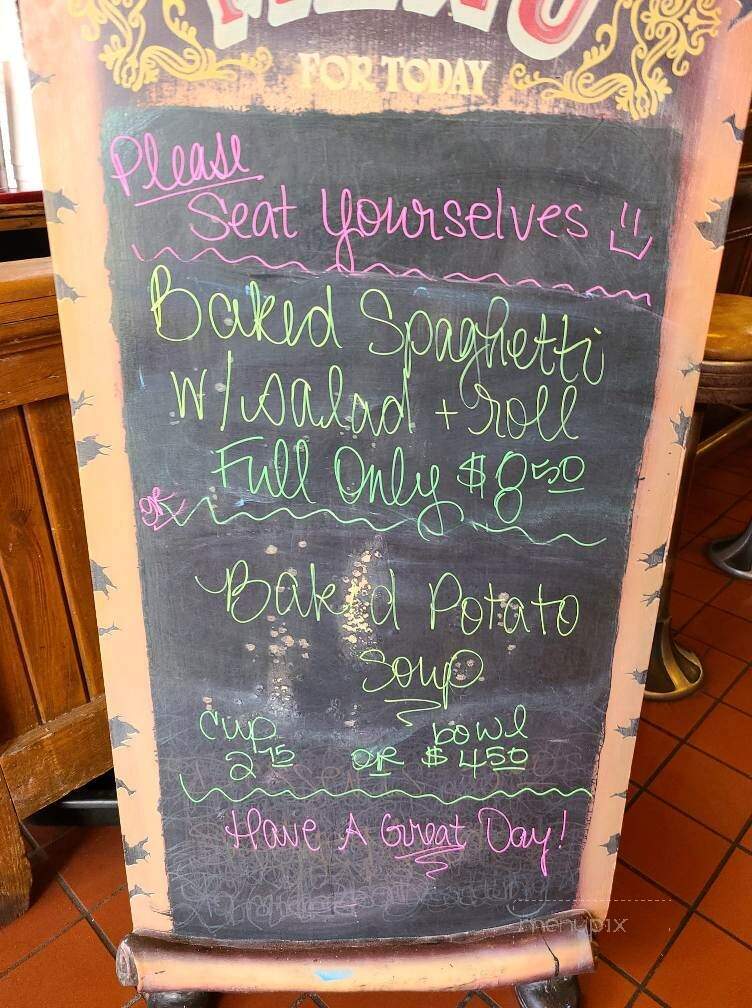 MENU
FOR TODAY
Please
Seat Yourselves
Baked Spaghetti
W/ salad + roll
Full Only $8 50
OR
Baked Potato
Soup
cup bowl
2 75 OR $ 4 50
Have A Great Day!
menupix